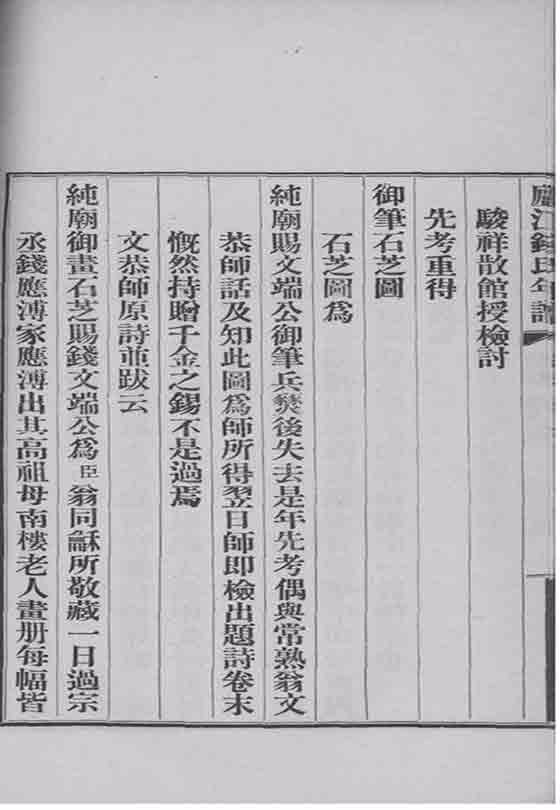 廬江錢氏年譜
駿祥散館授檢討
先考重得
御筆石芝圖
石芝圖爲
純廟賜文端公御筆兵燹後失去是年先考偶與常熟翁文
恭師話及知此圖爲師所得翌日師即檢出題詩卷末
慨然持贈千金之錫不是過焉
文恭師原詩並跋云
純廟御畫石芝賜錢文端公爲臣翁同龢所敬藏一日過宗
丞錢應溥家應溥出其高祖母南樓老人畫册每幅皆